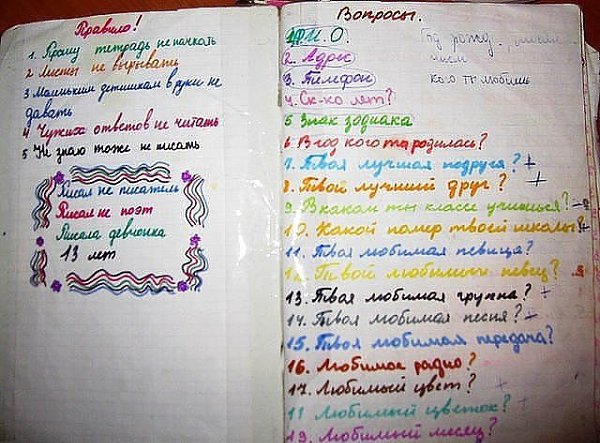 Правило!
1. Прошу тетрадь не пачкать
2 Листы не вырывать
3 Маленьким детишкам в руки не
давать
4 Чужих ответов не читать
5 Не знаю тоже не писать
Писал не писатель
Писал не поэт
Писала девчонка
13 лет
Вопросы.
1. Ф.И.О.
2. Адрес
3. Телефон
4. Ск-ко лет?
5 Знак зодиака
6 В год кого та родилась?
7. Твоя лучшая подруга? +
8. Твой лучший друг? +
9. В каком ты классе учишься?
10. Какой номер твоей школы? +
11. Твоя любимая певица?
12. Твой любимый певец?
13. Твоя любимая группа? +
14. Твоя любимая песня? +
15. Твоя любимая передача?
16. Любимое радио?
17. Любимый цвет? +
11 Любимый цветок? +
19. Любимый месяц?
Год рожд.
кого ты любишь